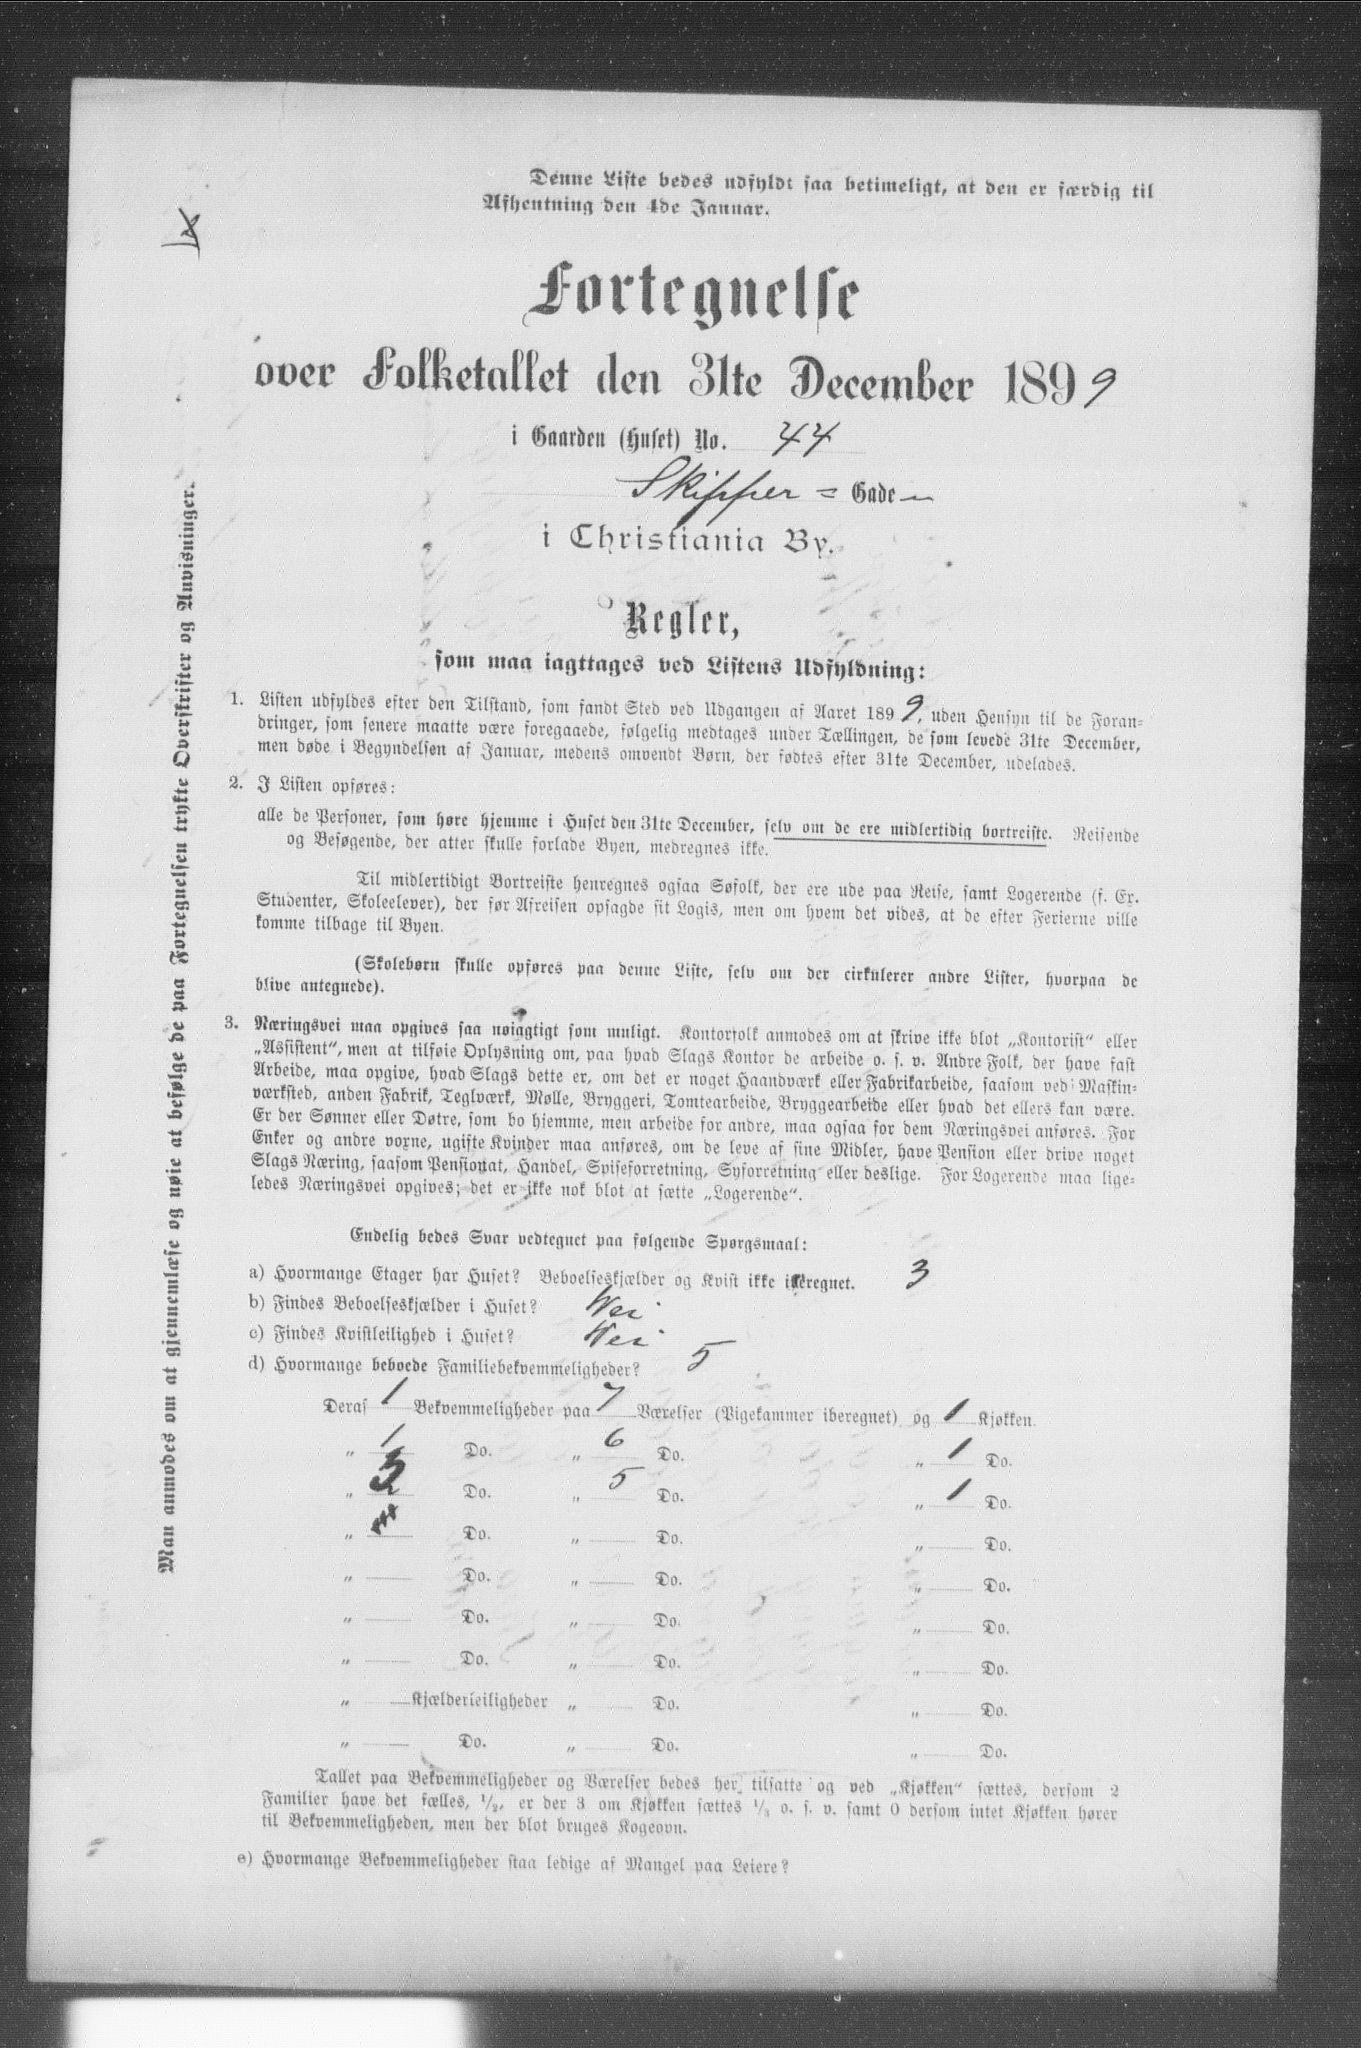 Denne Liste bedes udfyldt saa betimeligt, at den er færdig til
Afhentning den 4de Januar.
Fortegnelse
over Folketallet den 31te December 1899
i Gaarden (Huset) No. 44
Skipper = Gade
i Christiania By.
Regler,
som maa iagttages ved Listens Udfyldning:
1. Listen udfyldes efter den Tilstand, som fandt Sted ved Udgangen af Aaret 1899, uden Hensyn til de Foran-
dringer, som senere maatte være foregaaede, følgelig medtages under Tællingen, de som levede 31te December,
men døde i Begyndelsen af Januar, medens omvendt Børn, der fødtes efter 31te December, udelades.
2. I Listen opføres:
alle de Personer, som høre hjemme i Huset den 31te December, selv om de ere midlertidig bortreiste. Reisende
og Besøgende, der atter skulle forlade Byen, medregnes ikke.
Til midlertidigt Bortreiste henregnes ogsaa Søfolk, der ere ude paa Reise, samt Logerende (f. Ex.
Studenter, Skoleelever), der før Afreisen opsagde sit Logis, men om hvem det vides, at de efter Ferierne ville
komme tilbage til Byen.
(Skolebørn skulle opføres paa denne Liste, selv om der cirkulerer andre Lister, hvorpaa de
blive antegnede).
3. Næringsvei maa opgives saa nøiagtigt som muligt. Kontorfolk anmodes om at skrive ikke blot „Kontorist“ eller
„Assistent“, men at tilføie Oplysning om, paa hvad Slags Kontor de arbeide o. s. v. Andre Folk, der have fast
Arbeide, maa opgive, hvad Slags dette er, om det er noget Haandværk eller Fabrikarbeide, saasom ved Maskin-
værksted, anden Fabrik, Teglværk, Mølle, Bryggeri, Tomtearbeide, Bryggearbeide eller hvad det ellers kan være.
Er der Sønner eller Døtre, som bo hjemme, men arbeide for andre, maa ogsaa for dem Næringsvei anføres. For
Enker og andre voxne, ugifte Kvinder maa anføres, om de leve af sine Midler, have Pension eller drive noget
Slags Næring, saasom Pensionat, Handel, Spiseforretning, Syforretning eller deslige. For Logerende maa lige-
ledes Næringsvei opgives; det er ikke nok blot at sætte „Logerende“.
Endelig bedes Svar vedtegnet paa følgende Spørgsmaal:
a) Hvormange Etager har Huset? Beboelseskjælder og Kvist ikke iberegnet. 3
b) Findes Beboelseskjælder i Huset? Nei
c) Findes Kvistleilighed i Huset? Nei
d) Hvormange beboede Familiebekvemmeligheder? 5
Deraf 1 Bekvemmeligheder paa 7 Værelser (Pigekammer iberegnet) og 1 Kjøkken.
„ 1 Do. „ 6 Do. „ 1 Do.
„ 3 Do. „ 5 Do. „ 1 Do.
„ Do. „ Do. „ Do.
„ Do. „ Do. „ Do.
„ Do. „ Do. „ Do.
„ Do. „ Do. „ Do.
„ Kjælderleiligheder „ Do. „ Do.
„ Do. „ Do. „ Do.
Tallet paa Bekvemmeligheder og Værelser bedes her tilsatte og ved „Kjøkken“ sættes, dersom 2
Familier have det fælles, 1/2, er der 3 om Kjøkken sættes 1/3 o. s. v. samt 0 dersom intet Kjøkken hører
til Bekvemmeligheden, men der blot bruges Kogeovn.
e) Hvormange Bekvemmeligheder staa ledige af Mangel paa Leiere?
Man anmodes om at gjennemlæse og nøie at befølge de paa Fortegnelsen trykte Overskrifter og Anvisninger.